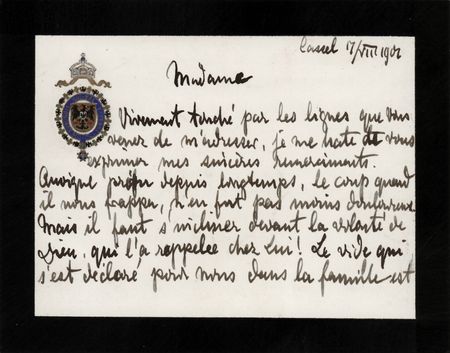 Cassel 17/VIII 1901
Madame
Vivement touché par les lignes que vous
venez de m'adresser, je me hate de vous
exprimer mes sincères remerciment.
Quoique prévu depuis longtemps, le coup quand
il nous frappe, n'en fut pas moins douloureux
Mais il faut s'incliner devant la volonté de
Dieu, qui l'a rappelée chez Lui! Le vide qui
s'est déclaré pour nous dans la famille est